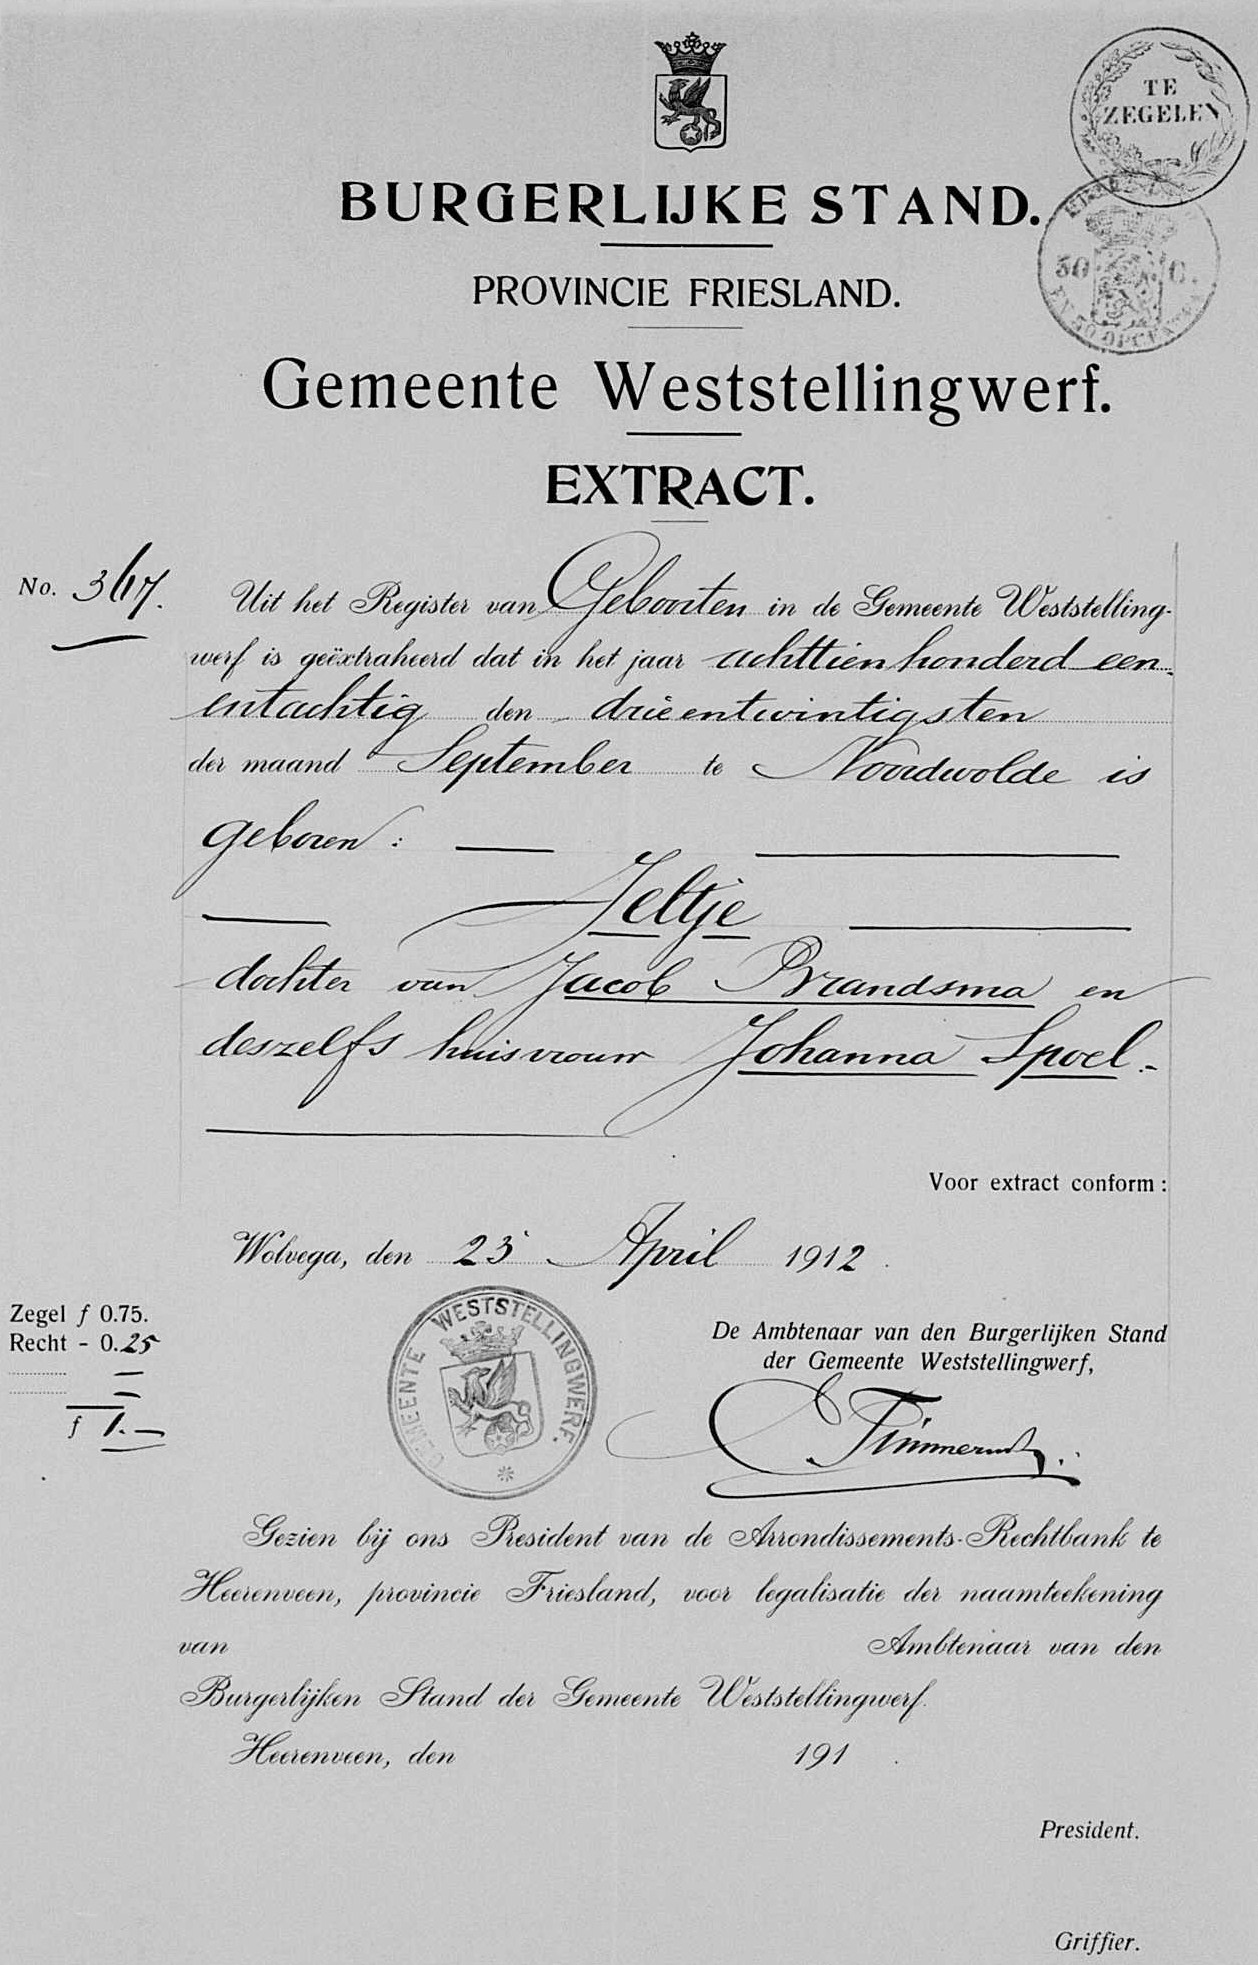 TE
ZEGELEN
BURGERLIJKE STAND.
50 C.
EN 50 OPCENTEN
PROVINCIE FRIESLAND.
Gemeente Weststellingwerf.
EXTRACT.
No. 367.
Uit het Register van Geboorten in de Gemeente Weststelling-
werf is geëxtraheerd dat in het jaar achttienhonderd een-
entachtig den drieentwintigsten
der maand September te Noordwolde is
geboren :
Jeltje
dochter van Jacob Brandsma en
deszelfs huisvrouw Johanna Spoel.-
Voor extract conform :
Wolvega, den 23 April 1912.
Zegel f 0.75.
Recht - 0.25
f 1.-
GEMEENTE WESTSTELLINGWERF.
De Ambtenaar van den Burgerlijken Stand
der Gemeente Weststellingwerf,
Gezien bij ons President van de Arrondissements-Rechtbank te
Heerenveen, provincie Friesland, voor legalisatie der naamteekening
van Ambtenaar van den
Burgerlijken Stand der Gemeente Weststellingwerf.
Heerenveen, den 191 .
President.
Griffier.